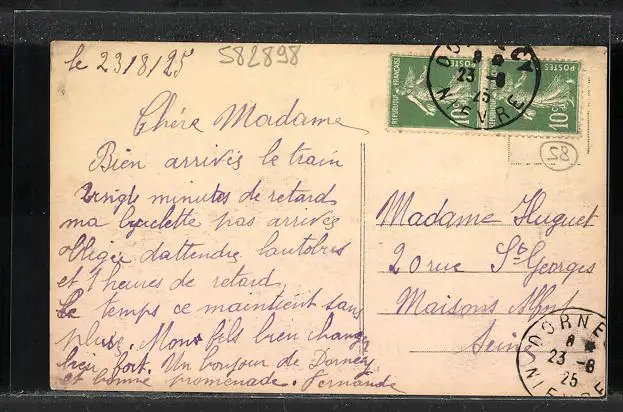 le 23/8/25
582898
Chére Madame
Bien arrivés le train
Vingt minutes de retard
ma byciclette pas arrivée
obligée d'attendre l'autobus
et 1 heures de retard
Le temps ce maintient sans
pluie. Mons fils bien change
bien fort. Un bonjour de Dornes
et bonne promenade. Fernande
REPUBLIQUE FRANÇAISE POSTES 10c
REPUBLIQUE FRANÇAISE POSTES 10c
23 -8
25
NIEVRE
58
Madame Huguet
20 rue St Georges
Maisons Alfort
Seine
DORNES
8
23 -8
25
NIEVRE